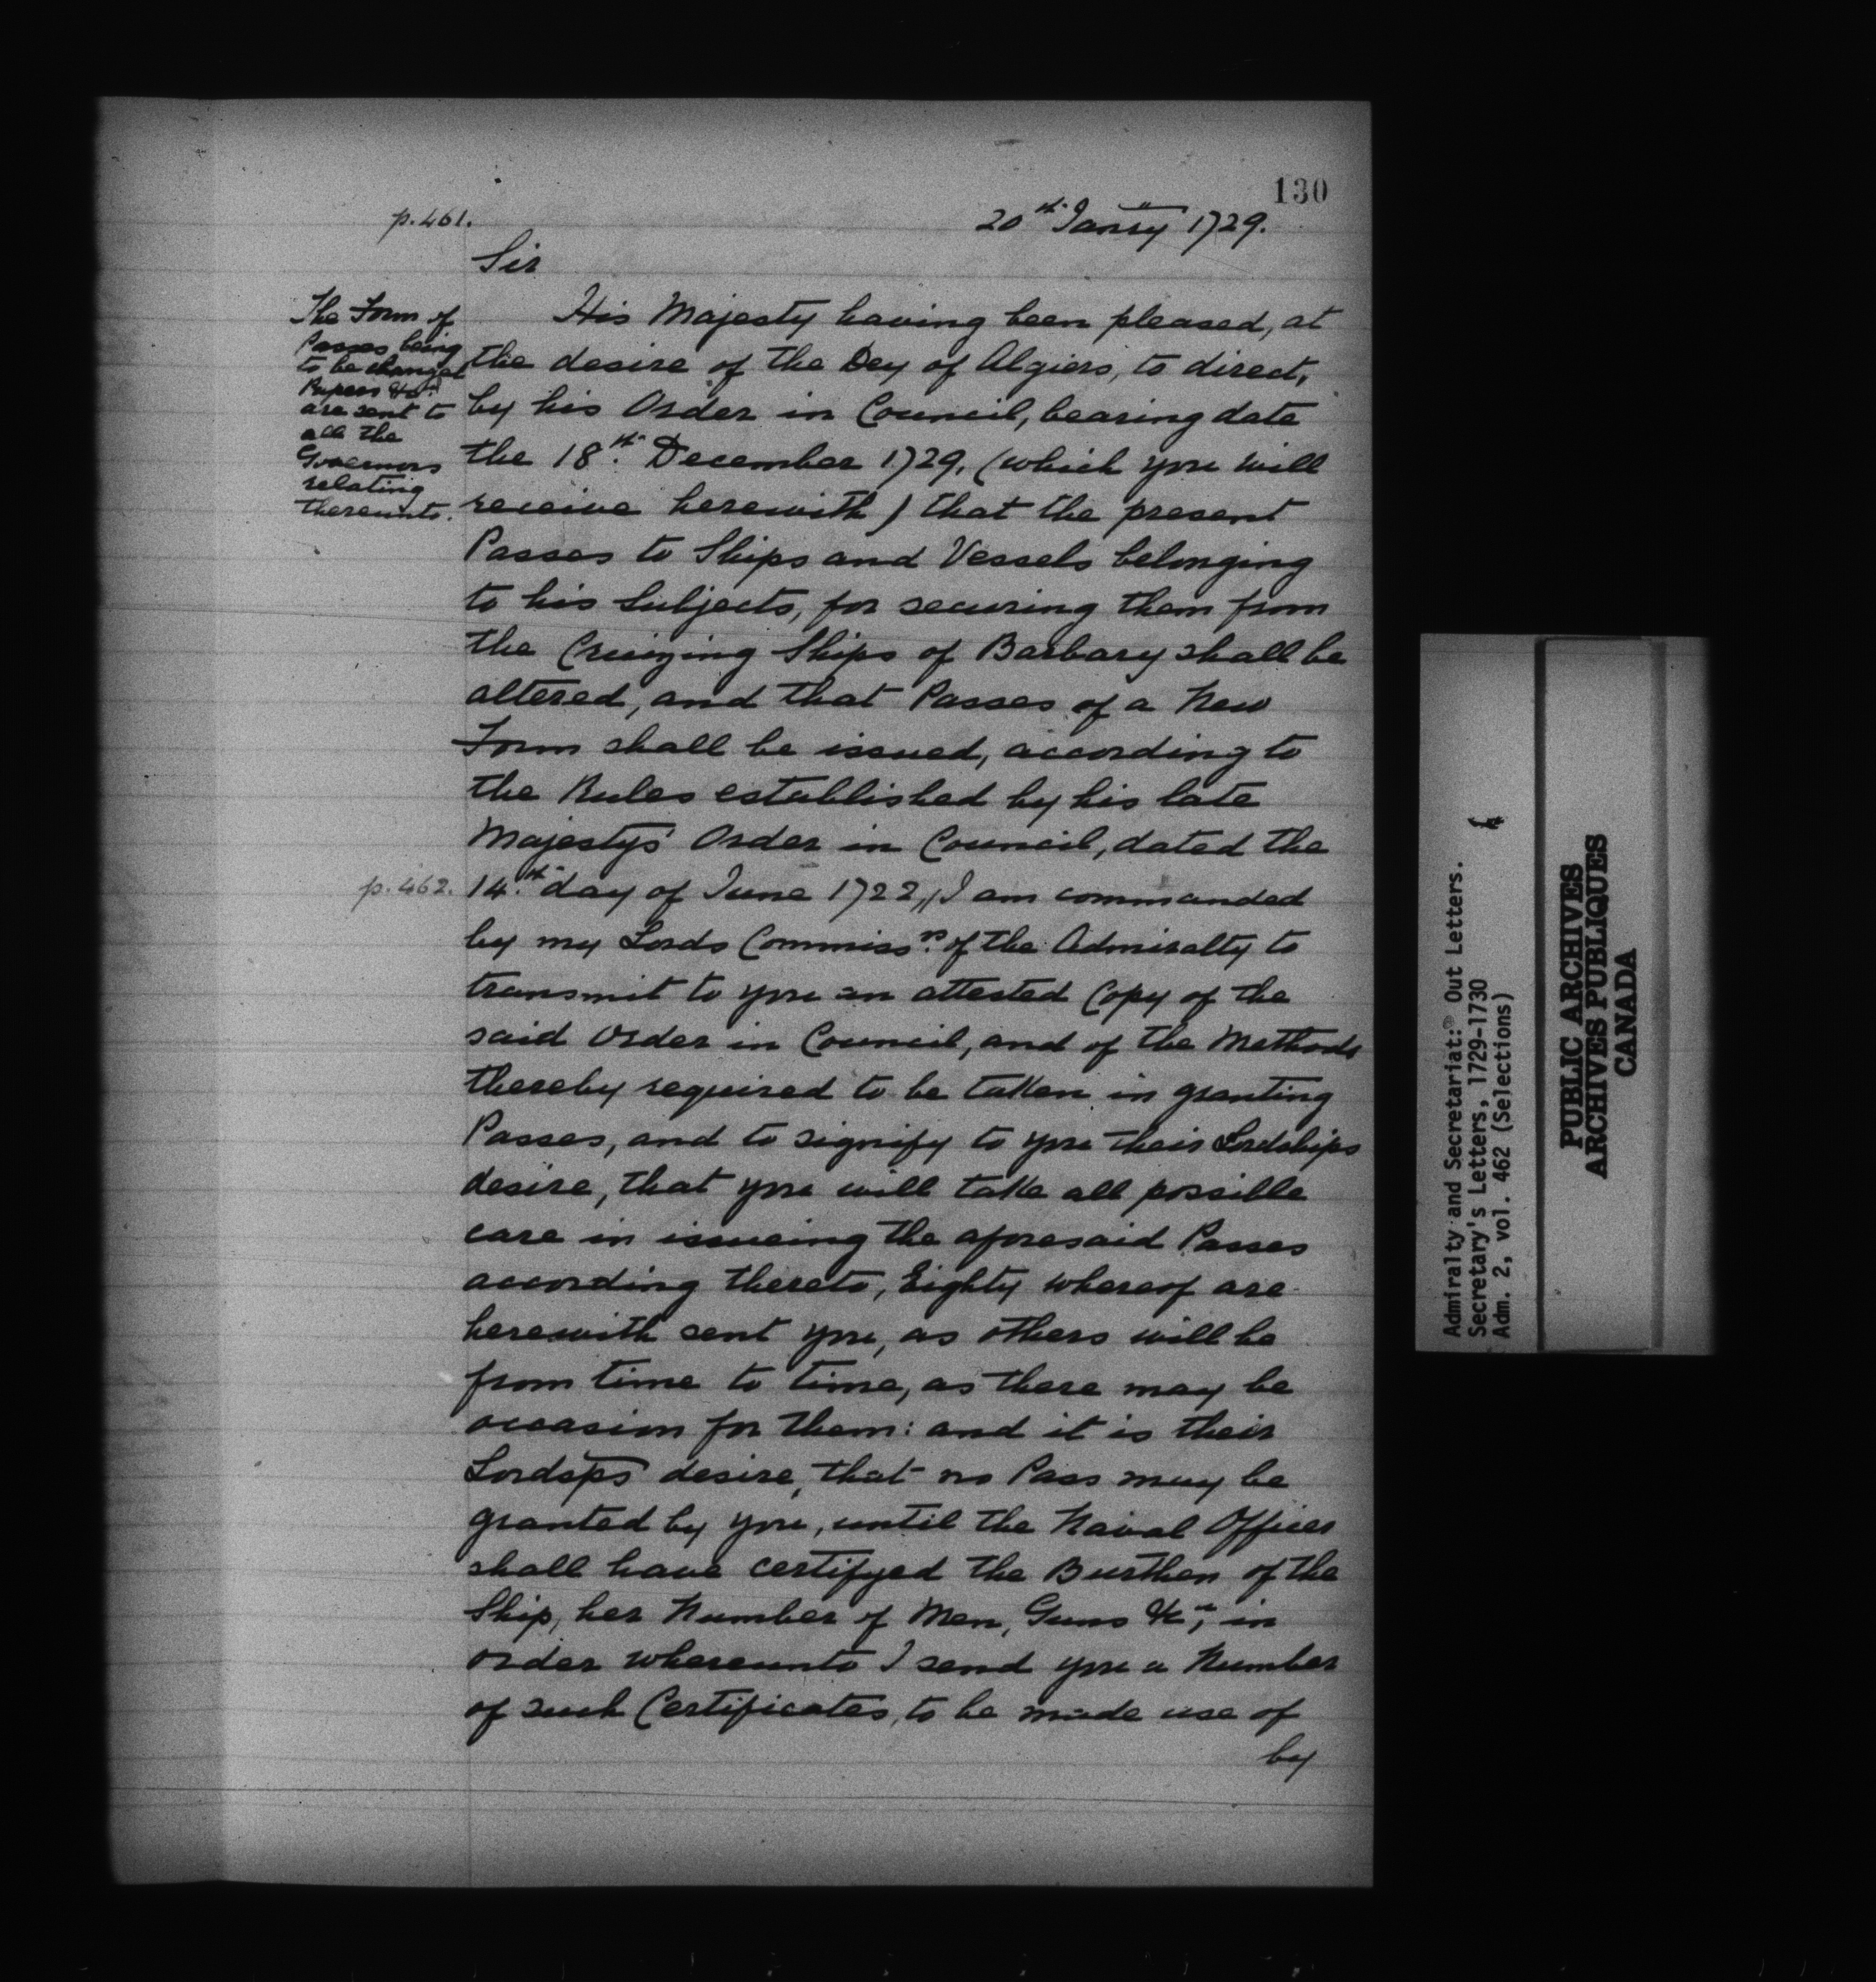 130
p.461.
20th Janry 1729.
Sir
The Form of
Passes being
to be changed
Papers &ca
are sent to
all the
Governors
relating
thereunto.
His Majesty having been pleased, at
the desire of the Dey of Algiers, to direct,
by his Order in Council, bearing date
the 18th December 1729, (which you will
receive herewith) that the present
Passes to Ships and Vessels belonging
to his Subjects, for securing them from
the Cruizing Ships of Barbary shall be
altered, and that Passes of a New
Form shall be issued, according to
the Rules established by his late
Majestys Order in Council, dated the
p.462.
14th day of June 1722, // I am commanded
by my Lords Commissrs of the Admiralty to
transmit to you an attested Copy of the
said Order in Council, and of the Methods
thereby required to be taken in granting
Passes, and to signify to you their Lordships
desire, that you will take all possible
care in issueing the aforesaid Passes
according thereto, Eighty whereof are
herewith sent you, as others will be
from time to time, as there may be
occasion for them: and it is their
Lordsps desire, that no Pass may be
granted by you, until the Naval Officer
shall have certifyed the Burthen of the
Ship, her Number of Men, Guns &ca, in
order whereunto I send you a Number
of such Certificates, to be made use of
by
Admiralty and Secretariat: Out Letters.
Secretary's Letters, 1729-1730
Adm. 2, vol. 462 (Selections)
PUBLIC ARCHIVES
ARCHIVES PUBLIQUES
CANADA